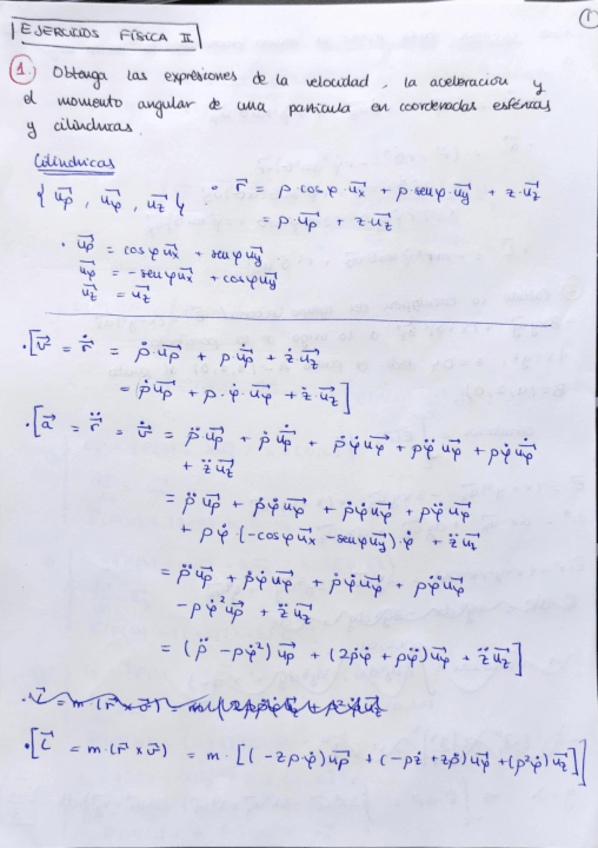 1
EJERCICIOS FÍSICA II
1. Obtenga las expresiones de la velocidad, la aceleración y
el momento angular de una partícula en coordenadas esféricas
y cilíndricas.
Cilíndricas
{ u⃗ρ , u⃗φ , u⃗z } · r⃗ = ρ·cosφ·u⃗x + ρ·senφ·u⃗y + z·u⃗z
= ρ·u⃗ρ + z·u⃗z
· u⃗ρ = cosφ u⃗x + senφ u⃗y
u⃗φ = -senφ u⃗x + cosφ u⃗y
u⃗z = u⃗z
· [v⃗ = ṙ⃗ = ρ̇·u⃗ρ + ρ·u̇⃗ρ + ż·u⃗z
= ρ̇ u⃗ρ + ρ·φ̇·u⃗φ + ż·u⃗z]
· [a⃗ = r̈⃗ = v̇⃗ = ρ̈·u⃗ρ + ρ̇·u̇⃗ρ + ρ̇φ̇u⃗φ + ρφ̈u⃗φ + ρφ̇u̇⃗φ
+ z̈ u⃗z
= ρ̈ u⃗ρ + ρ̇φ̇u⃗φ + ρ̇φ̇u⃗φ + ρφ̈u⃗φ
+ ρφ̇·(-cosφ u⃗x - senφ u⃗y)·φ̇ + z̈ u⃗z
= ρ̈ u⃗ρ + ρ̇φ̇u⃗φ + ρ̇φ̇u⃗φ + ρφ̈u⃗φ
- ρφ̇² u⃗ρ + z̈ u⃗z
= (ρ̈ - ρφ̇²) u⃗ρ + (2ρ̇φ̇ + ρφ̈) u⃗φ + z̈ u⃗z]
· [L⃗ = m·(r⃗ × v⃗) = m·[(-zρ·φ̇) u⃗ρ + (-ρż + zρ̇) u⃗φ + (ρ²φ̇) u⃗z]]